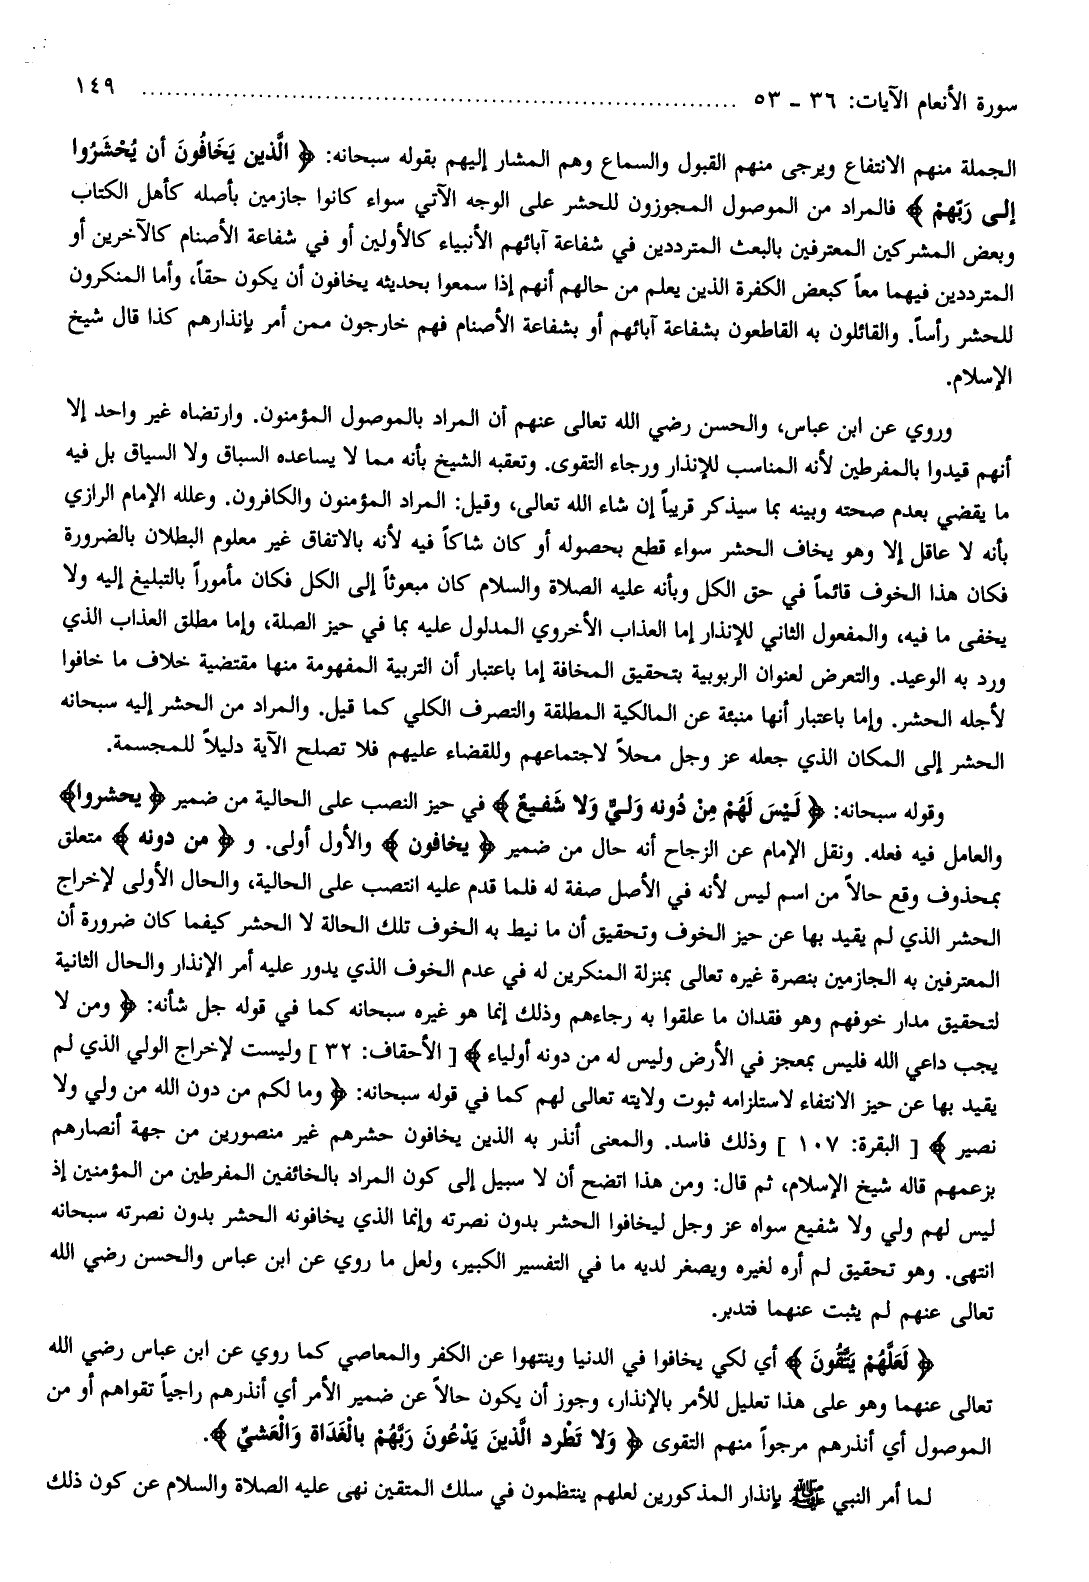 سورة الأنعام الآيات: ٣٦ - ٥٣ ........................................................................ ١٤٩
الجملة منهم الانتفاع ويرجى منهم القبول والسماع وهم المشار إليهم بقوله سبحانه: ﴿ الَّذين يَخَافُونَ أن يُحْشَرُوا
إلى رَبّهمْ ﴾ فالمراد من الموصول المجوزون للحشر على الوجه الآتي سواء كانوا جازمين بأصله كأهل الكتاب
وبعض المشركين المعترفين بالبعث المترددين في شفاعة آبائهم الأنبياء كالأولين أو في شفاعة الأصنام كالآخرين أو
المترددين فيهما معاً كبعض الكفرة الذين يعلم من حالهم أنهم إذا سمعوا بحديثه يخافون أن يكون حقاً، وأما المنكرون
للحشر رأساً. والقائلون به القاطعون بشفاعة آبائهم أو بشفاعة الأصنام فهم خارجون ممن أمر بإنذارهم كذا قال شيخ
الإسلام.
وروي عن ابن عباس، والحسن رضي الله تعالى عنهم أن المراد بالموصول المؤمنون. وارتضاه غير واحد إلا
أنهم قيدوا بالمفرطين لأنه المناسب للإنذار ورجاء التقوى. وتعقبه الشيخ بأنه مما لا يساعده السباق ولا السياق بل فيه
ما يقضي بعدم صحته وبينه بما سيذكر قريباً إن شاء الله تعالى، وقيل: المراد المؤمنون والكافرون. وعلله الإمام الرازي
بأنه لا عاقل إلا وهو يخاف الحشر سواء قطع بحصوله أو كان شاكاً فيه لأنه بالاتفاق غير معلوم البطلان بالضرورة
فكان هذا الخوف قائماً في حق الكل وبأنه عليه الصلاة والسلام كان مبعوثاً إلى الكل فكان مأموراً بالتبليغ إليه ولا
يخفى ما فيه، والمفعول الثاني للإنذار إما العذاب الأخروي المدلول عليه بما في حيز الصلة، وإما مطلق العذاب الذي
ورد به الوعيد. والتعرض لعنوان الربوبية بتحقيق المخافة إما باعتبار أن التربية المفهومة منها مقتضية خلاف ما خافوا
لأجله الحشر. وإما باعتبار أنها منبئة عن المالكية المطلقة والتصرف الكلي كما قيل. والمراد من الحشر إليه سبحانه
الحشر إلى المكان الذي جعله عز وجل محلاً لاجتماعهم وللقضاء عليهم فلا تصلح الآية دليلاً للمجسمة.
وقوله سبحانه: ﴿ لَيْسَ لَهُم مِنْ دُونه وَليٌّ وَلا شَفيعٌ ﴾ في حيز النصب على الحالية من ضمير ﴿ يحشروا﴾
والعامل فيه فعله. ونقل الإمام عن الزجاج أنه حال من ضمير ﴿ يخافون ﴾ والأول أولى. و ﴿ من دونه ﴾ متعلق
بمحذوف وقع حالاً من اسم ليس لأنه في الأصل صفة له فلما قدم عليه انتصب على الحالية، والحال الأولى لإخراج
الحشر الذي لم يقيد بها عن حيز الخوف وتحقيق أن ما نيط به الخوف تلك الحالة لا الحشر كيفما كان ضرورة أن
المعترفين به الجازمين بنصرة غيره تعالى بمنزلة المنكرين له في عدم الخوف الذي يدور عليه أمر الإنذار والحال الثانية
لتحقيق مدار خوفهم وهو فقدان ما علقوا به رجاءهم وذلك إنما هو غيره سبحانه كما في قوله جل شأنه: ﴿ ومن لا
يجب داعي الله فليس بمعجز في الأرض وليس له من دونه أولياء ﴾ [ الأحقاف: ٣٢ ] وليست لإخراج الولي الذي لم
يقيد بها عن حيز الانتفاء لاستلزامه ثبوت ولايته تعالى لهم كما في قوله سبحانه: ﴿ وما لكم من دون الله من ولي ولا
نصير ﴾ [ البقرة: ١٠٧ ] وذلك فاسد. والمعنى أنذر به الذين يخافون حشرهم غير منصورين من جهة أنصارهم
بزعمهم قاله شيخ الإسلام، ثم قال: ومن هذا اتضح أن لا سبيل إلى كون المراد بالخائفين المفرطين من المؤمنين إذ
ليس لهم ولي ولا شفيع سواه عز وجل ليخافوا الحشر بدون نصرته وإنما الذي يخافونه الحشر بدون نصرته سبحانه
انتهى. وهو تحقيق لم أره لغيره ويصغر لديه ما في التفسير الكبير، ولعل ما روي عن ابن عباس والحسن رضي الله
تعالى عنهم لم يثبت عنهما فتدبر.
﴿ لَعَلَّهُمْ يَتَّقُونَ ﴾ أي لكي يخافوا في الدنيا وينتهوا عن الكفر والمعاصي كما روي عن ابن عباس رضي الله
تعالى عنهما وهو على هذا تعليل للأمر بالإنذار، وجوز أن يكون حالاً عن ضمير الأمر أي أنذرهم راجياً تقواهم أو من
الموصول أي أنذرهم مرجواً منهم التقوى ﴿ وَلا تَطْرد الَّذينَ يَدْعُونَ رَبَّهُمْ بالْغَدَاة وَالْعَشيّ ﴾.
لما أمر النبي ﷺ بإنذار المذكورين لعلهم ينتظمون في سلك المتقين نهى عليه الصلاة والسلام عن كون ذلك